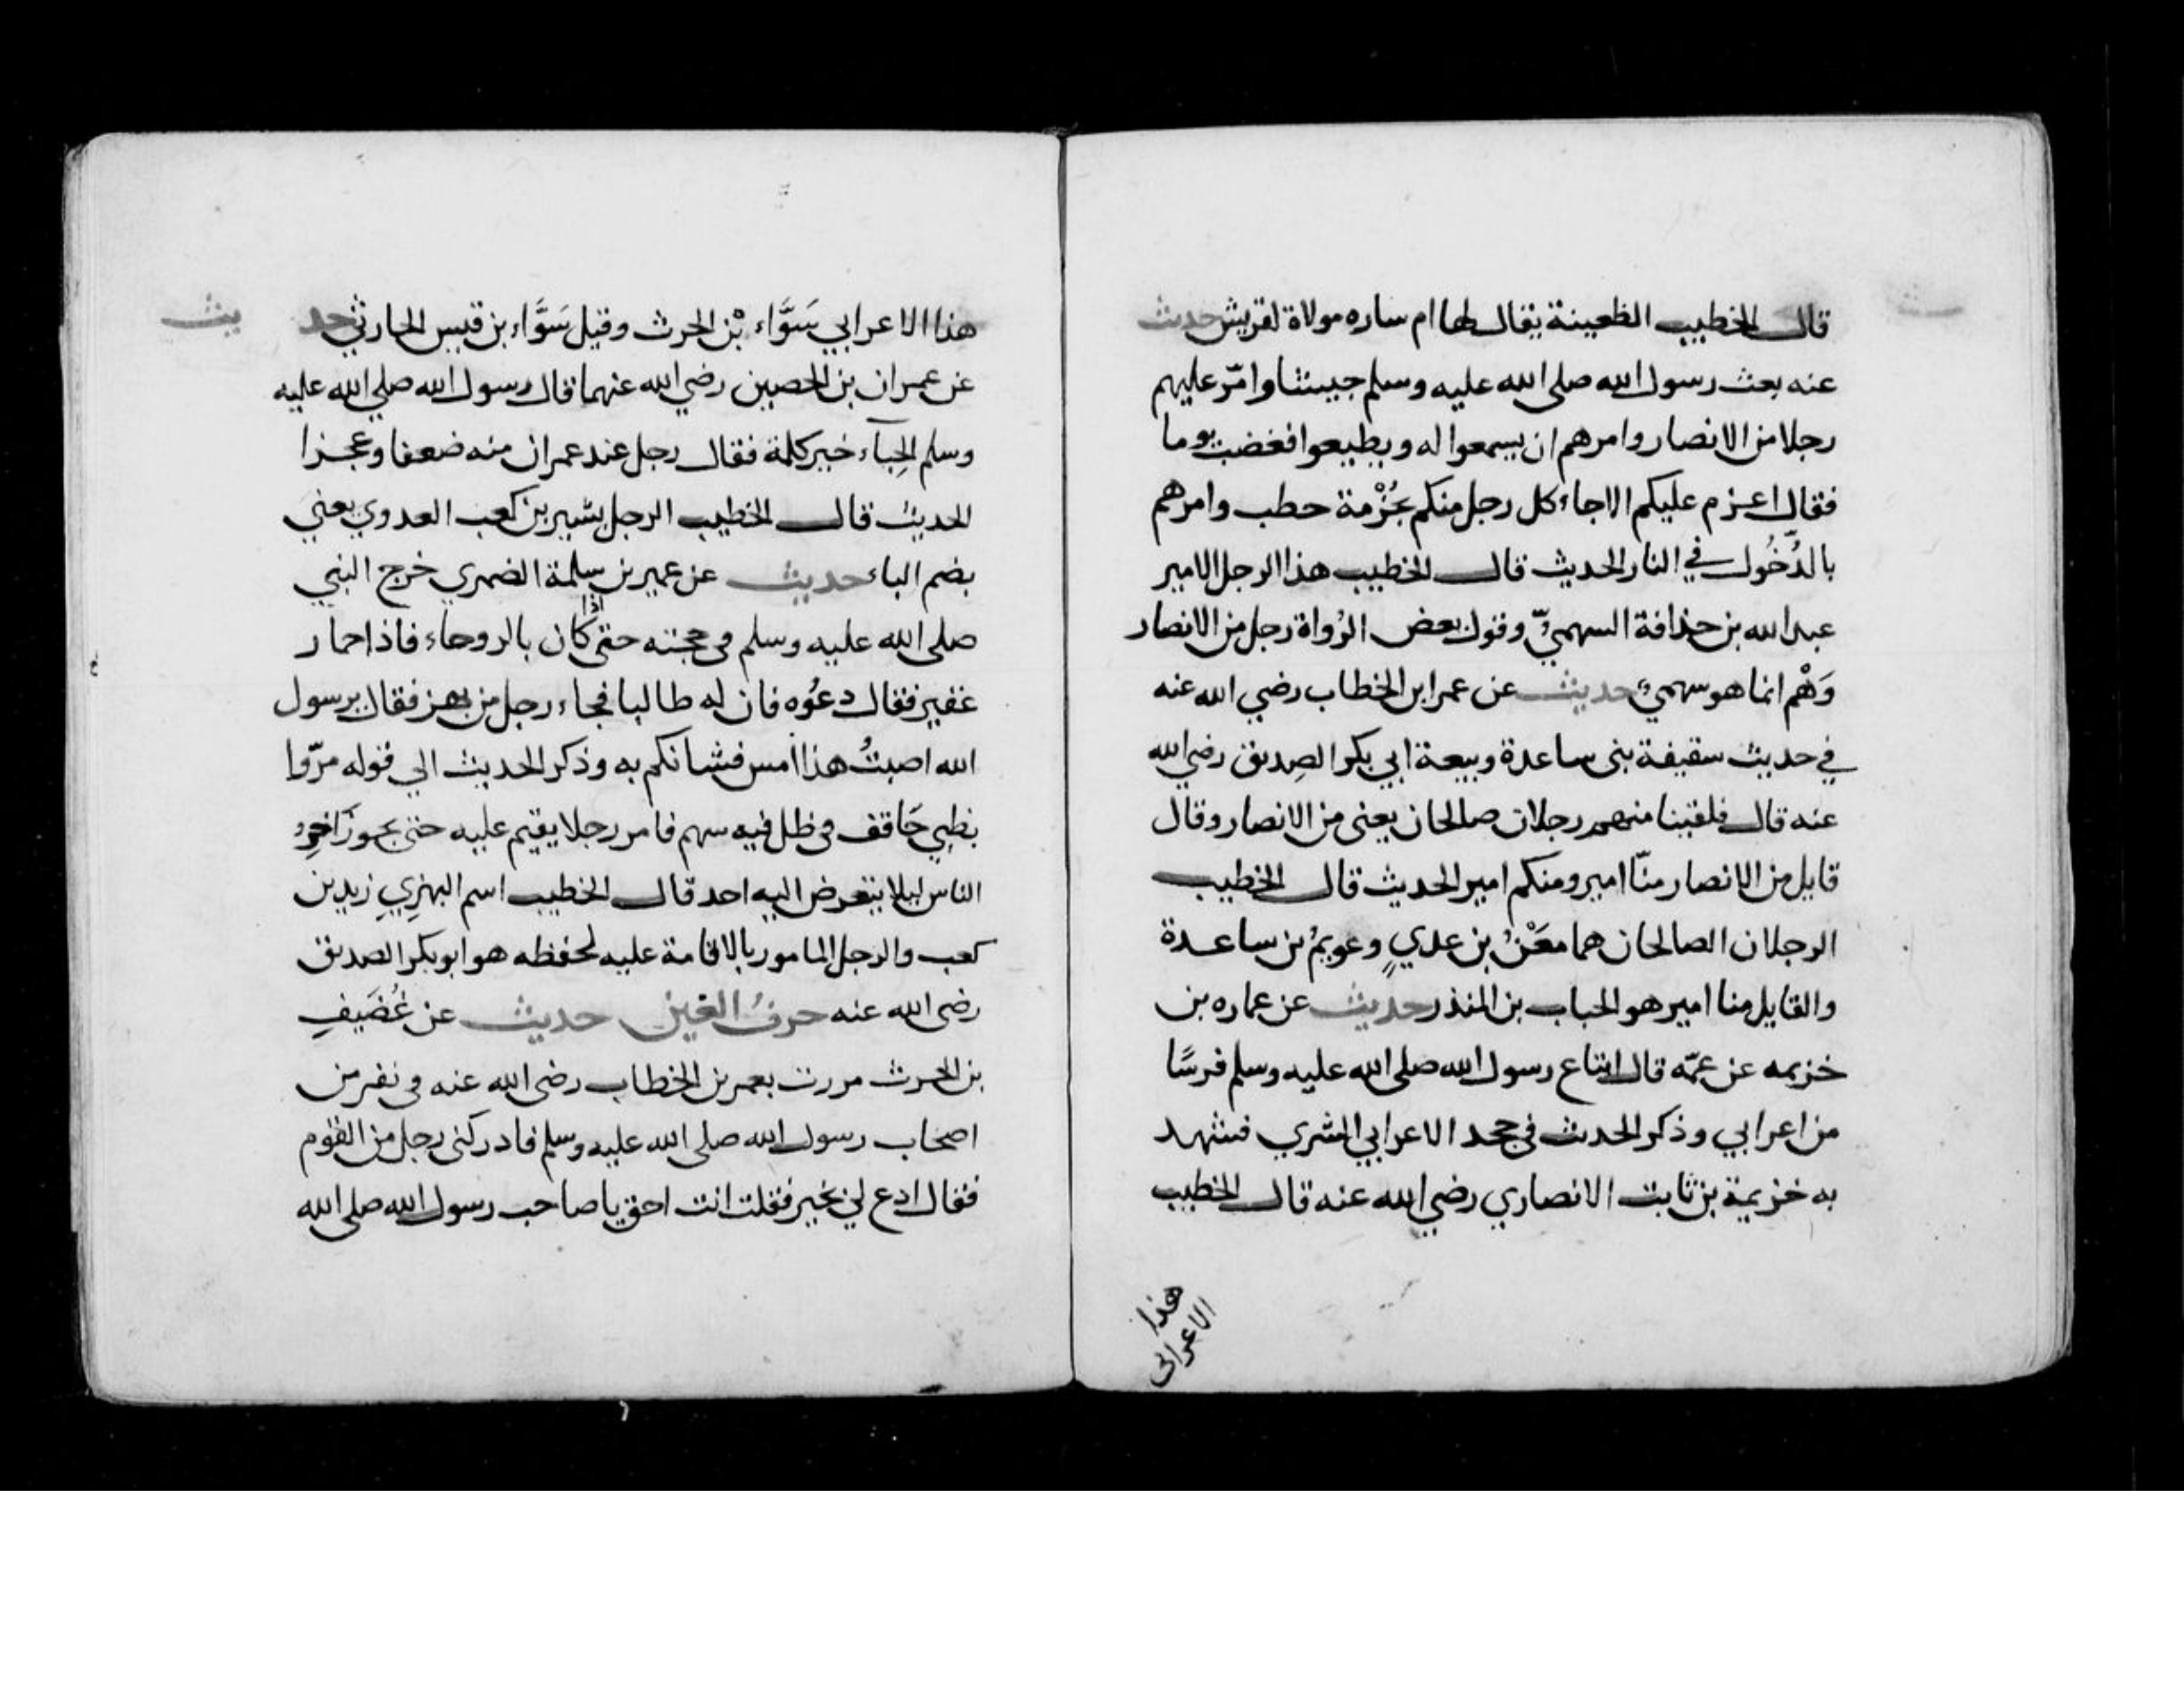 قال الخطيب الظعينة يقال لها ام ساره مولاة لقريش حديث
عنه بعث رسول الله صلى الله عليه وسلم جيشا وامّر عليهم
رجلا من الانصار وامرهم ان يسمعوا له ويطيعوا فغضب يوما
فقال اعزم عليكم الا جاء كل رجل منكم بحُزْمة حطب وامرهم
بالدُّخُول في النار الحديث قال الخطيب هذا الرجل الامير
عبد الله بن حذافة السهميّ وقول بعض الرُواة رجل من الانصار
وَهْم انما هو سهمي حديث عن عمر ابن الخطاب رضي الله عنه
في حديث سقيفة بنى ساعدة وبيعة ابي بكر الصِديق رضي الله
عنه قال فلقينا منهم رجلان صالحان يعنى من الانصار وقال
قايل من الانصار منّا امير ومنكم امير الحديث قال الخطيب
الرجلان الصالحان هما معْنُ بن عدي وعويمُ بن ساعدة
والقايل منا امير هو الحباب بن المنذر حديث عن عماره بن
خزيمه عن عمّه قال ابتاع رسول الله صلى الله عليه وسلم فرسًا
من اعرابي وذكر الحديث في جحد الاعرابي المشري فشهد
به خزيمة بن ثابت الانصاري رضي الله عنه قال الخطيب
هذا
الاعرابى
هذا الاعرابي سَوَّاء بْن الحرث وقيل سَوَّاء بن قيس الحارثي حديث
عن عمران بن الحصين رضي الله عنهما قال رسول الله صلى الله عليه
وسلم الحِياء خير كلمة فقال رجل عند عمران منه ضعفا وعجزا
الحديث قال الخطيب الرجل بشير بن كعب العدوي يعني
بضم الباء حديث عن عمير بن سلمة الضمري خرج النبي
صلى الله عليه وسلم في حجته حتى اذا كان بالروحاء فاذا حمار
عفير فقال دعُوه فان له طالبا فجاء رجل من بهز فقال يرسول
الله اصبتُ هذا امس فشانكم به وذكر الحديث الي قوله مرّوا
بظبي حَاقف في ظل فيه سهم فامر رجلا يقيم عليه حتى يجوز آخِر
الناس ليلا يتعرض اليه احد قال الخطيب اسم البهزِيِ زيد بن
كعب والرجل المامور بالاقامة عليه لحفظه هو ابو بكر الصديق
رضى الله عنه حرفُ الغين حديث عن غُضَيفِ
بن الحرث مررت بعمر بن الخطاب رضى الله عنه في نفر من
اصحاب رسول الله صلى الله عليه وسلم فادركنى رجل من القوم
فقال ادع لي بخير فقلت انت احق يا صاحب رسول الله صلى الله